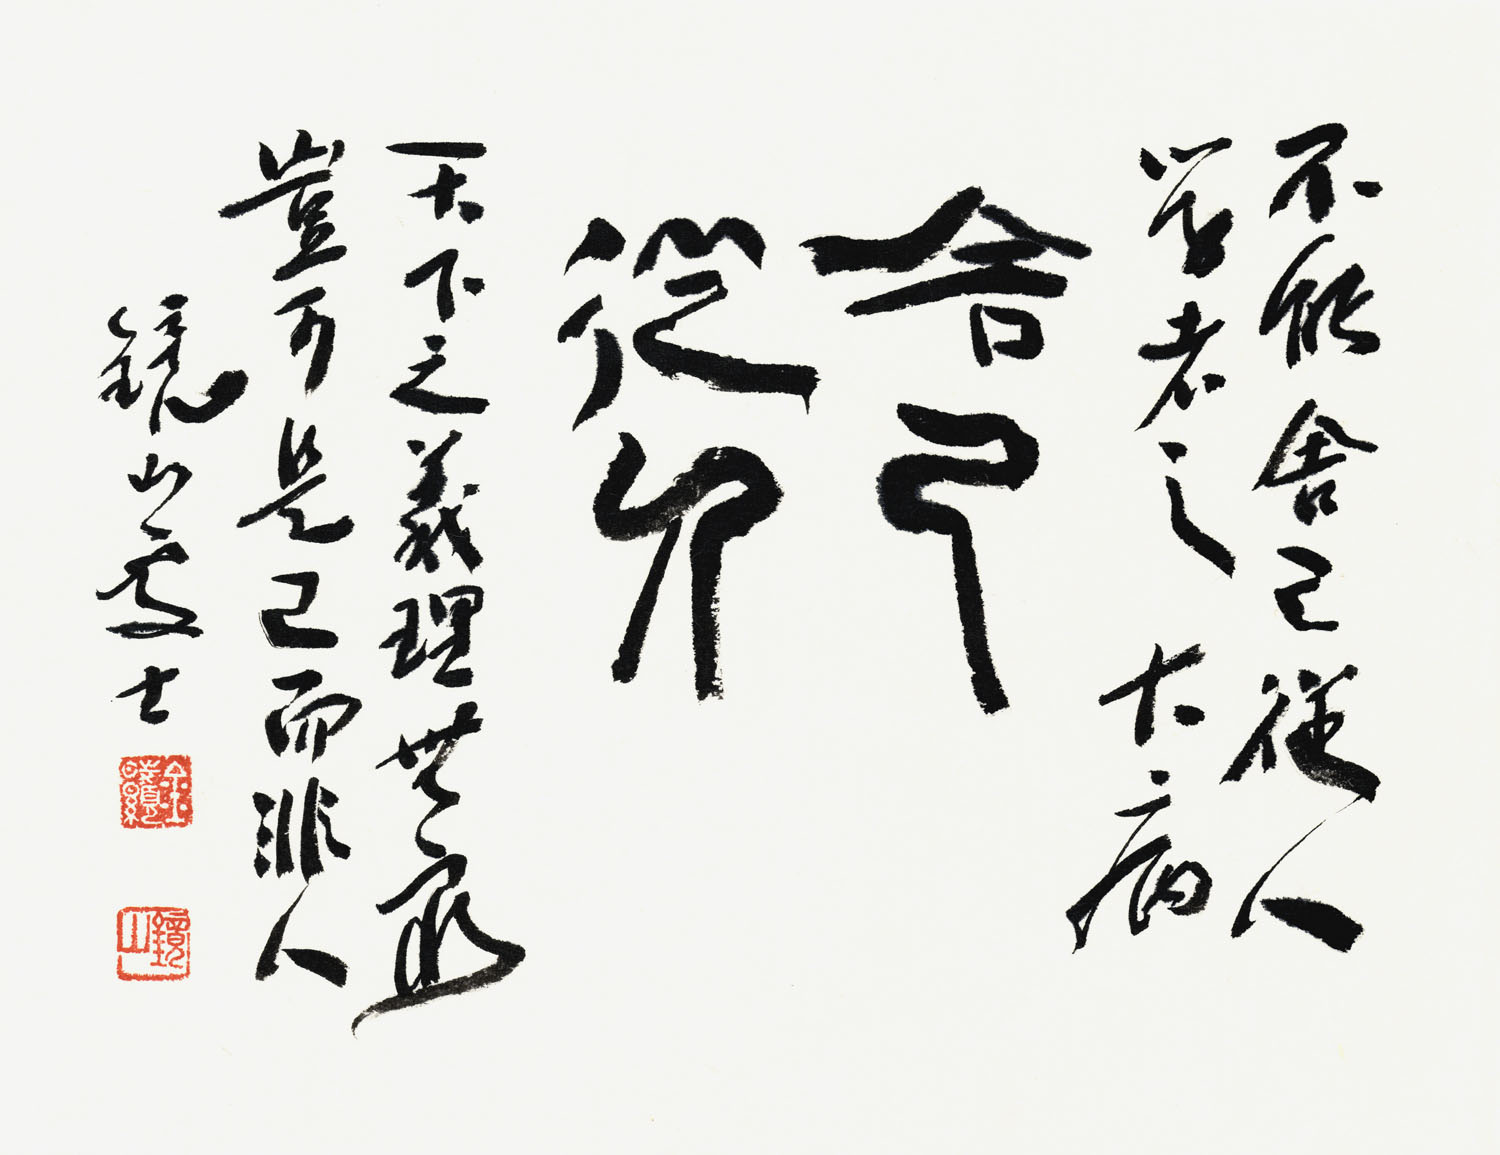 不能舍己從人
學者之大病
舍己
從人
天下之義理無窮
豈可是己而非人
鏡山處士
鏡山